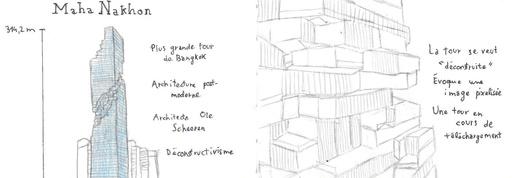 Maha Nakhon
314,2 m
Plus grande tour
de Bangkok
Architecture post-
moderne
Architecte Ole
Scheeren
Déconstructivisme
La tour se veut
"déconstruite"
Évoque une
image pixelisée
Une tour en
cours de
téléchargement